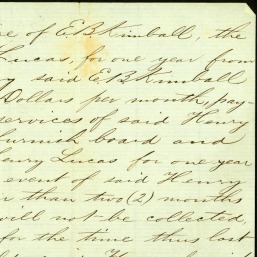 re of E B Kimball, the
Lucas, for one year from
y said E B Kimball
Dollars per month, pay-
services of said Henry
furnish board and
Henry Lucas for one year
event of said Henry
r than two (2) months
will not be collected,
for the time thus lost